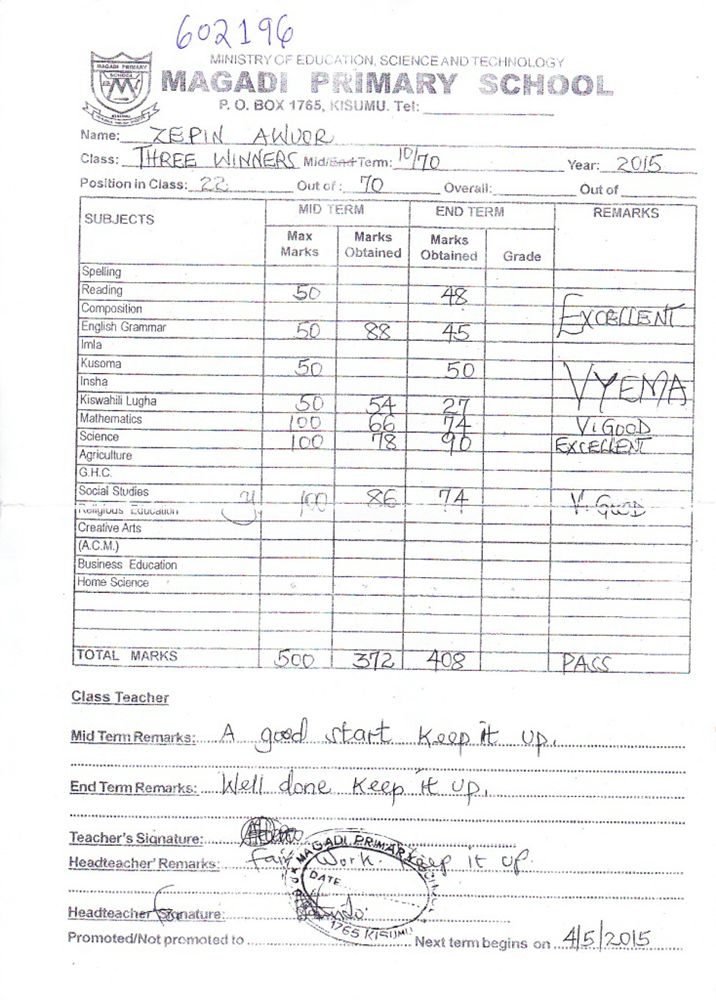 602196
MINISTRY OF EDUCATION, SCIENCE AND TECHNOLOGY
MAGADI PRIMARY SCHOOL
MAGADI PRIMARY SCHOOL
P. O. BOX 1765, KISUMU. Tel:
Name: ZEPIN AWUOR
Class: THREE WINNERS Mid/End Term: 10/70 Year: 2015
Position in Class: 22 Out of: 70 Overall: Out of
SUBJECTS MID TERM END TERM REMARKS
Max Marks Marks Obtained Marks Obtained Grade
Spelling
Reading 50 48
Composition EXCELLENT
English Grammar 50 88 45
Imla
Kusoma 50 50
Insha VYEMA
Kiswahili Lugha 50 54 27
Mathematics 100 66 74 V. GOOD
Science 100 78 90 EXCELLENT
Agriculture
G.H.C.
Social Studies 100 86 74 V. GOOD
Religious Education
Creative Arts
(A.C.M.)
Business Education
Home Science
TOTAL MARKS 500 372 408 PASS
Class Teacher
Mid Term Remarks: A good start keep it up.
End Term Remarks: Well done keep it up.
Teacher's Signature:
Headteacher' Remarks: Fair work. keep it up.
MAGADI PRIMARY
DATE
1765 KISUMU
Headteacher Signature:
Promoted/Not promoted to Next term begins on 4/5/2015